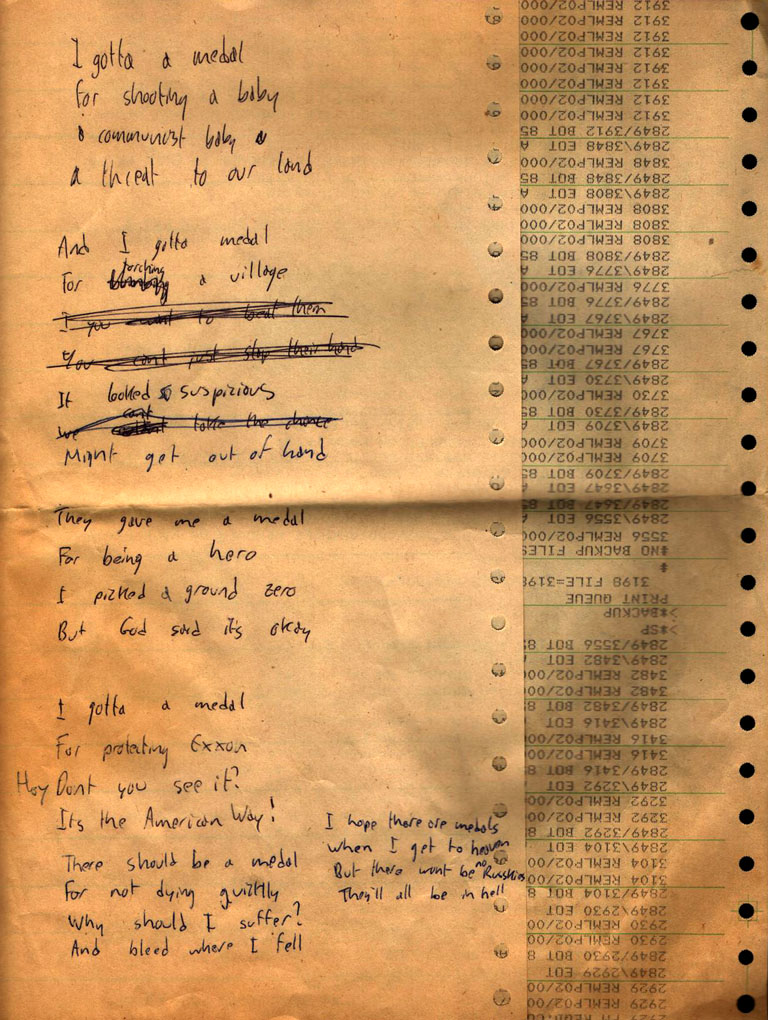 I gotta a medal
For shooting a baby
a communist baby
a threat to our land
And I gotta medal
For torching a village
If you want to beat them
You cant just slap their hand
It looked suspizious
we cant take the chance
Might get out of hand
They gave me a medal
For being a hero
I pizked a ground zero
But God said it's okay
I gotta a medal
For protecting Exxon
Hey Dont you see it?
Its the American Way!
There should be a medal
For not dying quizkly
Why should I suffer?
And bleed where I fell
I hope there are medals
when I get to heaven
But there wont be no Russkies
They'll all be in hell
3912 REMLP02/000
3912 REMLP02/000
3912 REMLP02/000
3912 REMLP02/000
3912 REMLP02/000
3912 REMLP02/000
2849/3912 BOT 85
2849\3848 EOT A
3848 REMLP02/000
2849/3848 BOT 85
2849\3808 EOT A
3808 REMLP02/000
3808 REMLP02/000
3808 REMLP02/000
2849/3808 BOT 85
2849\3776 EOT A
3776 REMLP02/000
2849/3776 BOT 85
2849\3767 EOT A
3767 REMLP02/000
3767 REMLP02/000
2849/3767 BOT 85
2849\3730 EOT A
3730 REMLP02/000
2849/3730 BOT 85
2849\3709 EOT A
3709 REMLP02/000
3709 REMLP02/000
2849/3709 BOT 85
2849\3647 EOT A
2849/3647 BOT 85
2849\3556 EOT A
3556 REMLP02/000
#NO BACKUP FILES
#
3198 FILE=3198
PRINT QUEUE
>*BACKUP
>*SP
2849/3556 BOT 8
2849\3482 EOT A
3482 REMLP02/000
3482 REMLP02/000
2849/3482 BOT 8
2849\3416 EOT
3416 REMLP02/00
3416 REMLP02/00
2849/3416 BOT 8
2849\3292 EOT
3292 REMLP02/00
3292 REMLP02/00
2849/3292 BOT 8
2849\3104 EOT
3104 REMLP02/00
3104 REMLP02/00
2849/3104 BOT 8
2849\2930 EOT
2930 REMLP02/00
2930 REMLP02/00
2849/2930 BOT 8
2849\2929 EOT
2929 REMLP02/00
2929 REMLP02/00